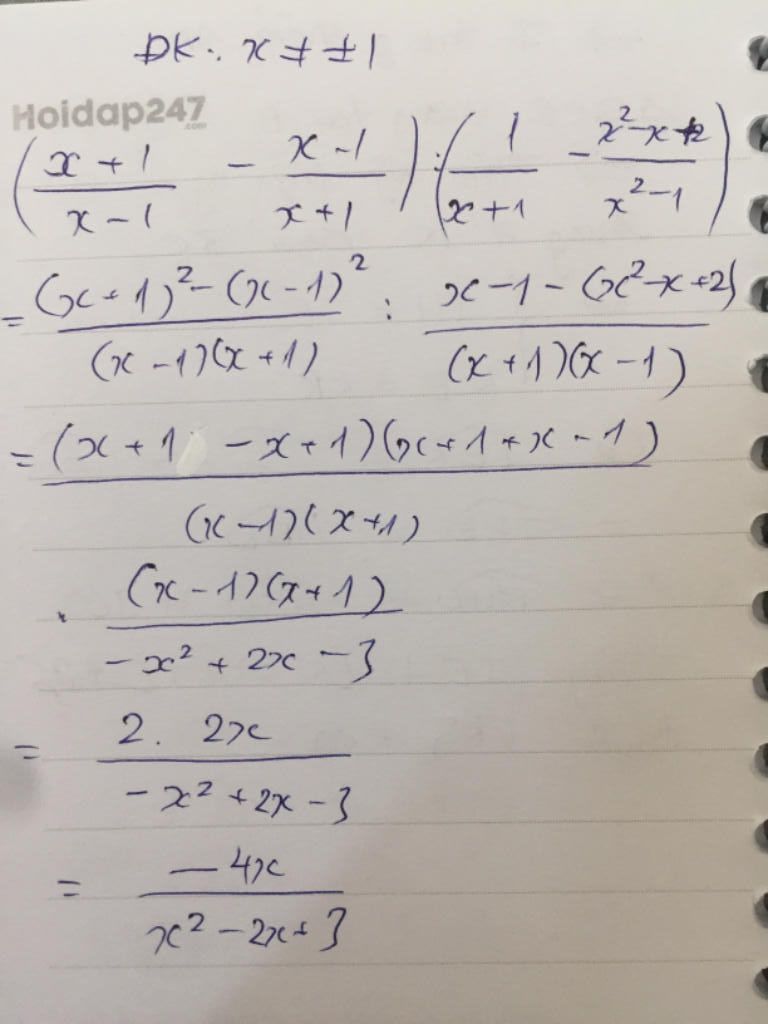 ĐK: x ≠ ±1
Hoidap247
.com
((x+1)/(x-1) - (x-1)/(x+1)) : (1/(x+1) - (x²-x+2)/(x²-1))
= ((x+1)²-(x-1)²)/((x-1)(x+1)) : (x-1-(x²-x+2))/((x+1)(x-1))
= ((x+1-x+1)(x+1+x-1))/((x-1)(x+1))
. ((x-1)(x+1))/(-x²+2x-3)
= (2.2x)/(-x²+2x-3)
= (-4x)/(x²-2x+3)